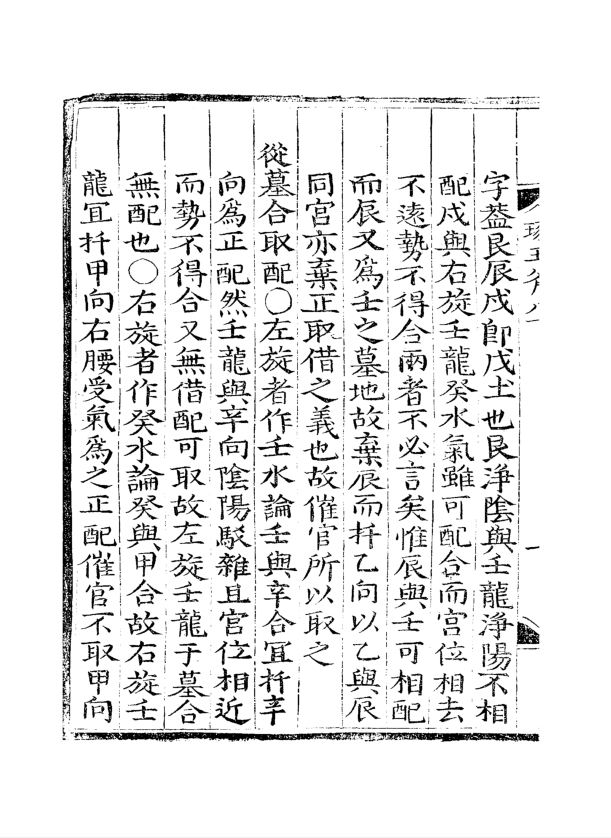 字葢艮辰戍卽戊土也艮淨陰與壬龍淨陽不相
配戍與右旋壬龍癸水氣雖可配合而宮位相去
不遠勢不得合兩者不必言矣惟辰與壬可相配
而辰又爲壬之墓地故棄辰而扦乙向以乙與辰
同宮亦棄正取借之義也故催官所以取之
從墓合取配〇左旋者作壬水論壬與辛合冝扦辛
向爲正配然壬龍與辛向陰陽駁雜且宮位相近
而勢不得合又無借配可取故左旋壬龍于墓合
無配也〇右旋者作癸水論癸與甲合故右旋壬
龍冝扦甲向右腰受氣爲之正配催官不取甲向